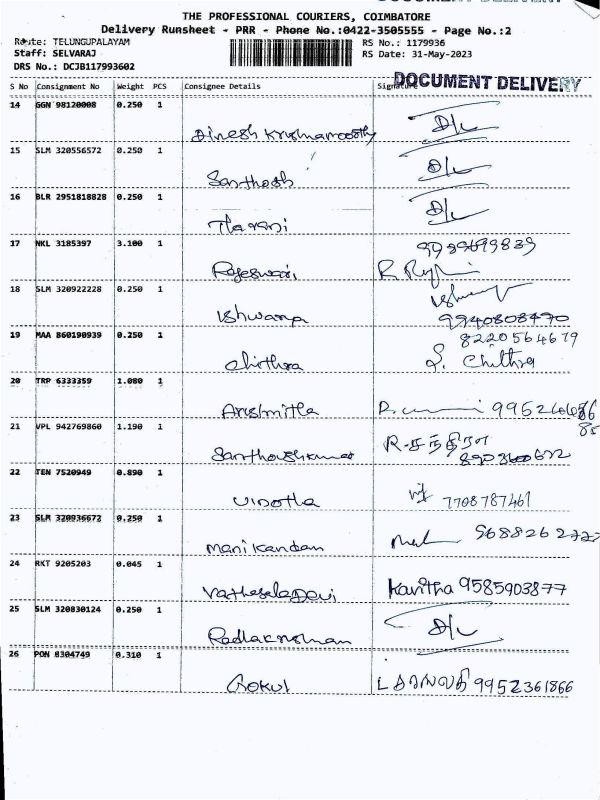 THE PROFESSIONAL COURIERS, COIMBATORE
Delivery Runsheet - PRR - Phone No.:0422-3505555 - Page No.:2
Route: TELUNGUPALAYAM RS No.: 1179936
Staff: SELVARAJ RS Date: 31-May-2023
DRS No.: DCJB117993602
DOCUMENT DELIVERY
S No Consignment No Weight PCS Consignee Details Signature
14 GGN 98120008 0.250 1
Dinesh Krishnamoorthy D/L
15 SLM 320556572 0.250 1
Santhosh D/L
16 BLR 2951818828 0.250 1
Tharani D/L
17 NKL 3185397 3.100 1
Rajeswari
18 SLM 320922228 0.250 1
Ishwarya 9940808490
19 MAA 860190939 0.250 1 8220564679
Chithra S. Chithra
20 TRP 6333359 1.080 1
Arushmitla
21 VPL 942769860 1.190 1
Santhoshkumar
22 TEN 7520949 0.890 1
Vinotha 7708787461
23 SLM 320936672 0.250 1
Manikandan
24 RKT 9205203 0.045 1
Vathsala Devi Kavitha 9585903877
25 SLM 320830124 0.250 1
Radhakrishnan D/L
26 PON 8304749 0.310 1
Gokul 9952361866